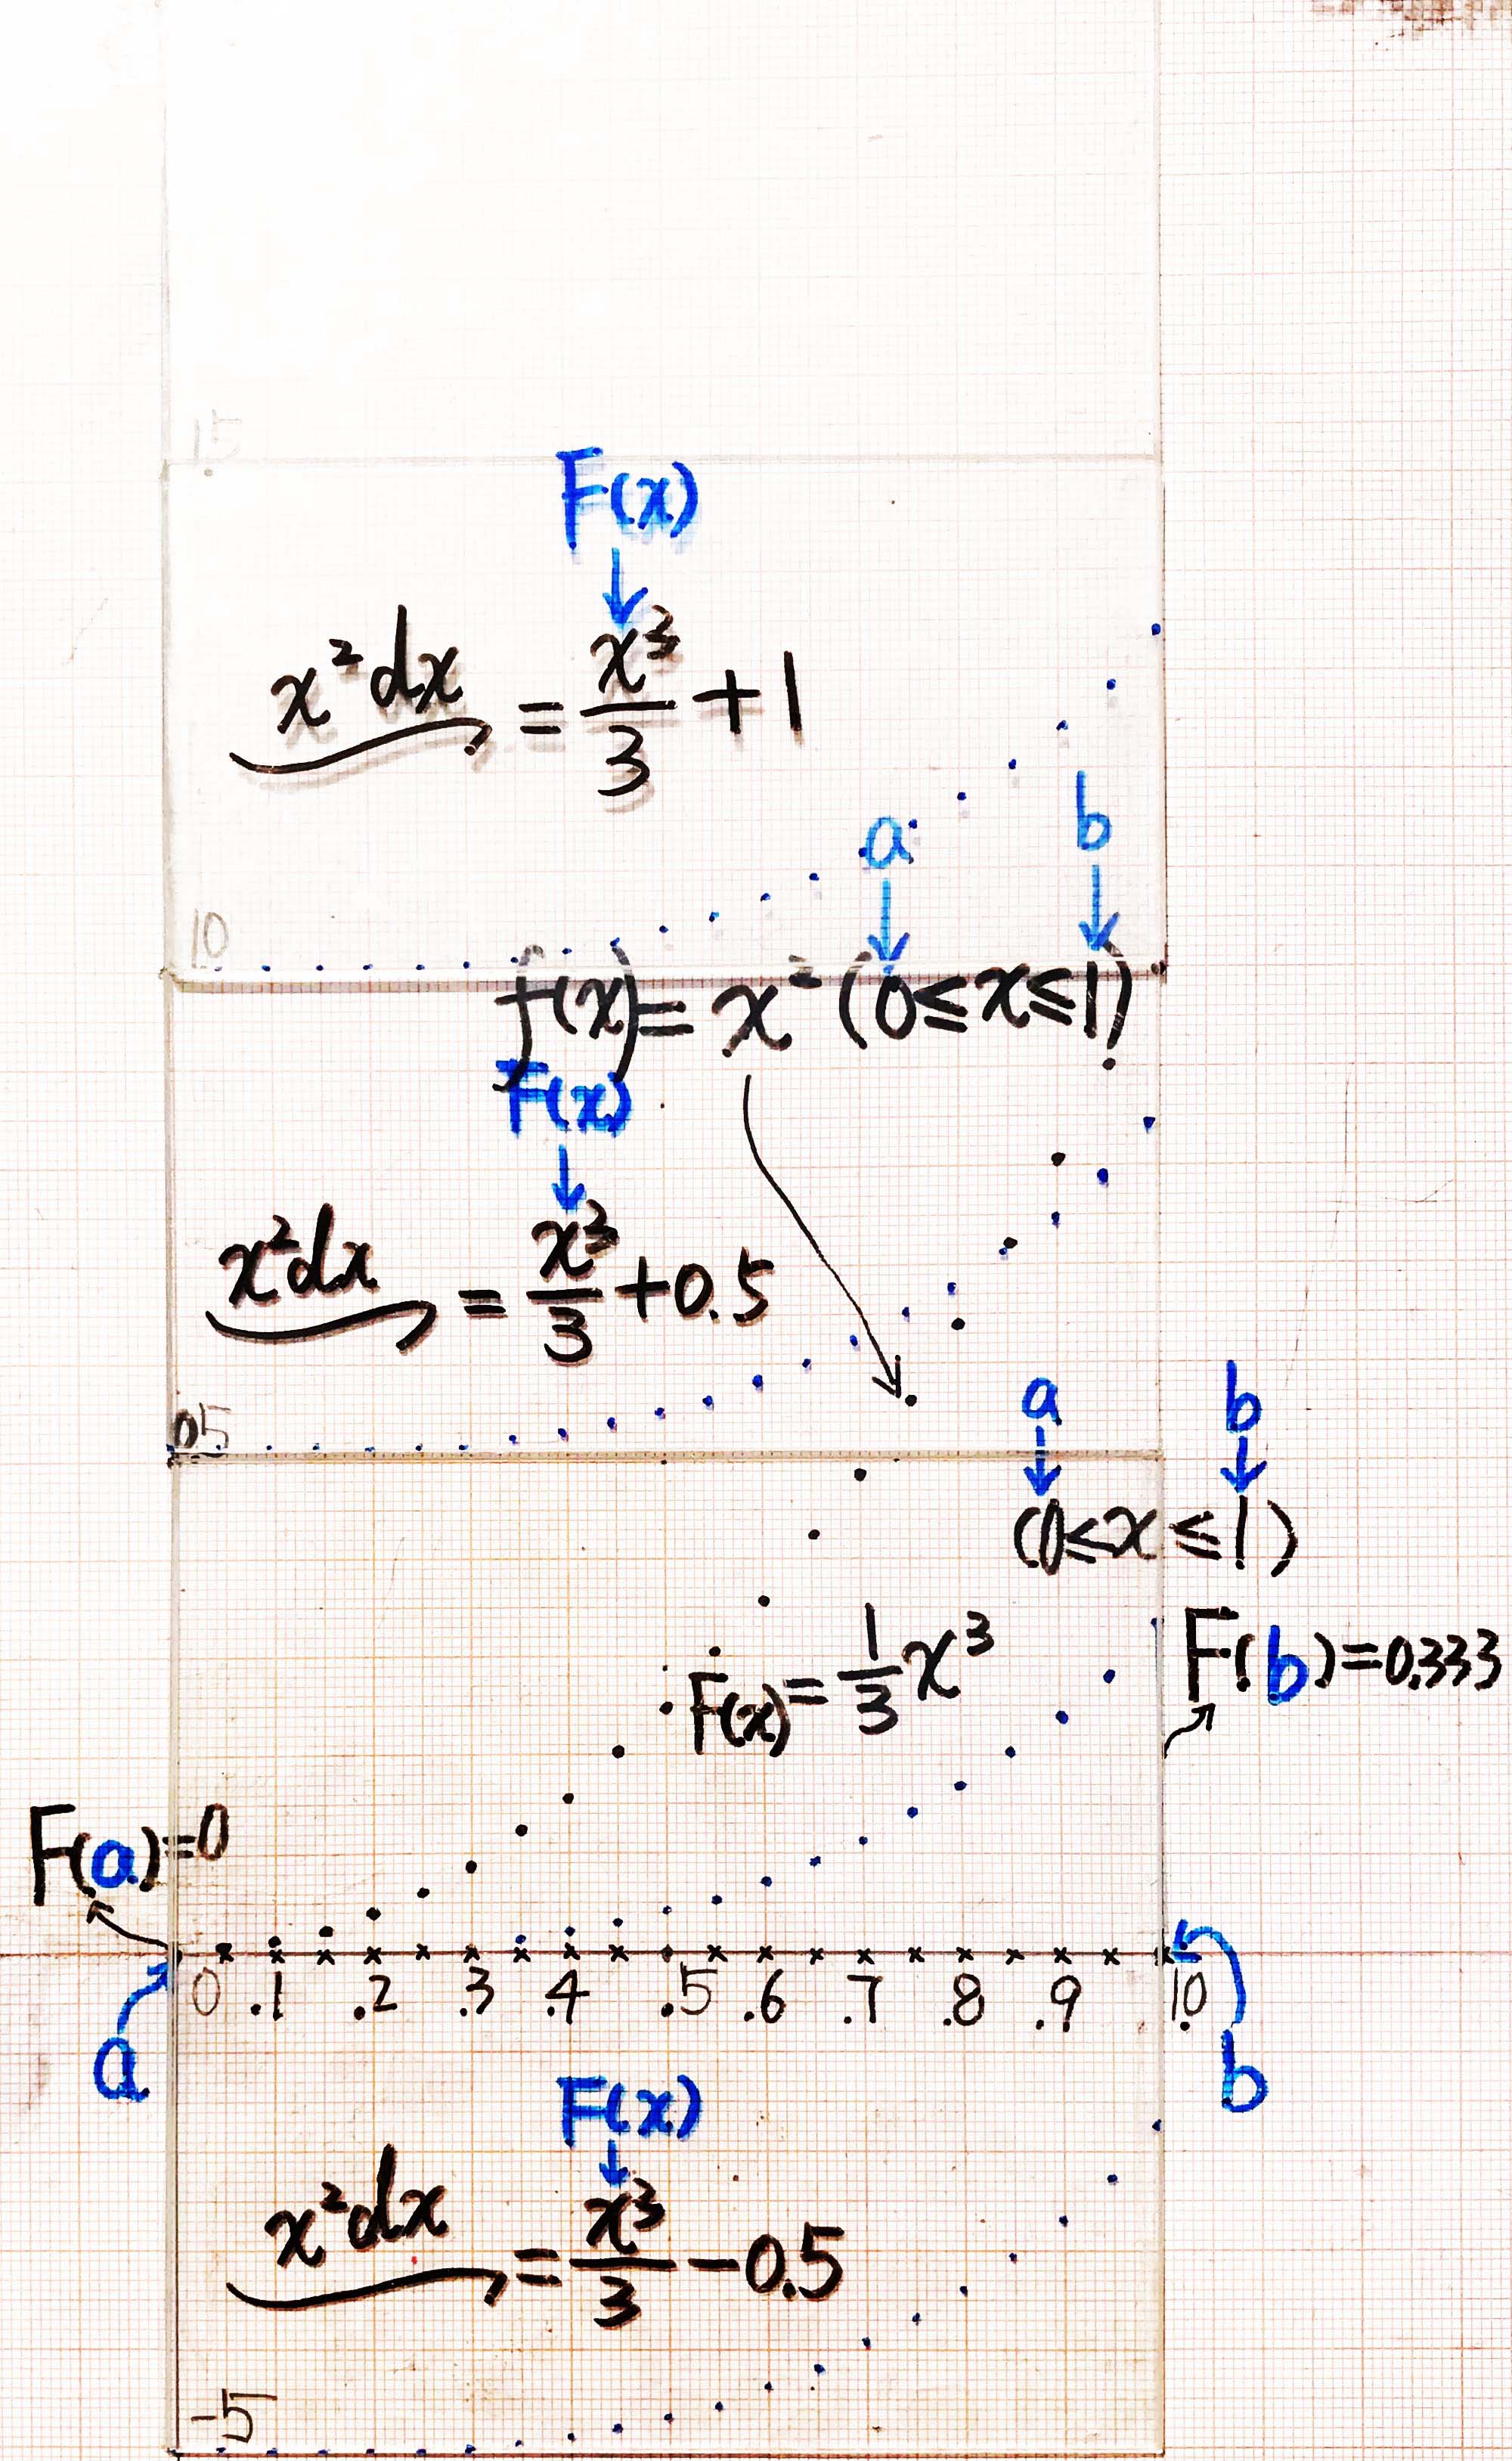 15
F(x)
↓
x² dx = x³/3 + 1
a b
↓ ↓
10
f(x) = x² (0≤x≤1)
F(x)
↓
x²dx = x³/3 + 0.5
a b
↓ ↓
05
(0≤x≤1)
F(x) = 1/3 x³
F(b) = 0.333
F(a) = 0
0 .1 .2 .3 .4 .5 .6 .7 .8 .9 1.0
a b
F(x)
↓
x²dx = x³/3 − 0.5
-5